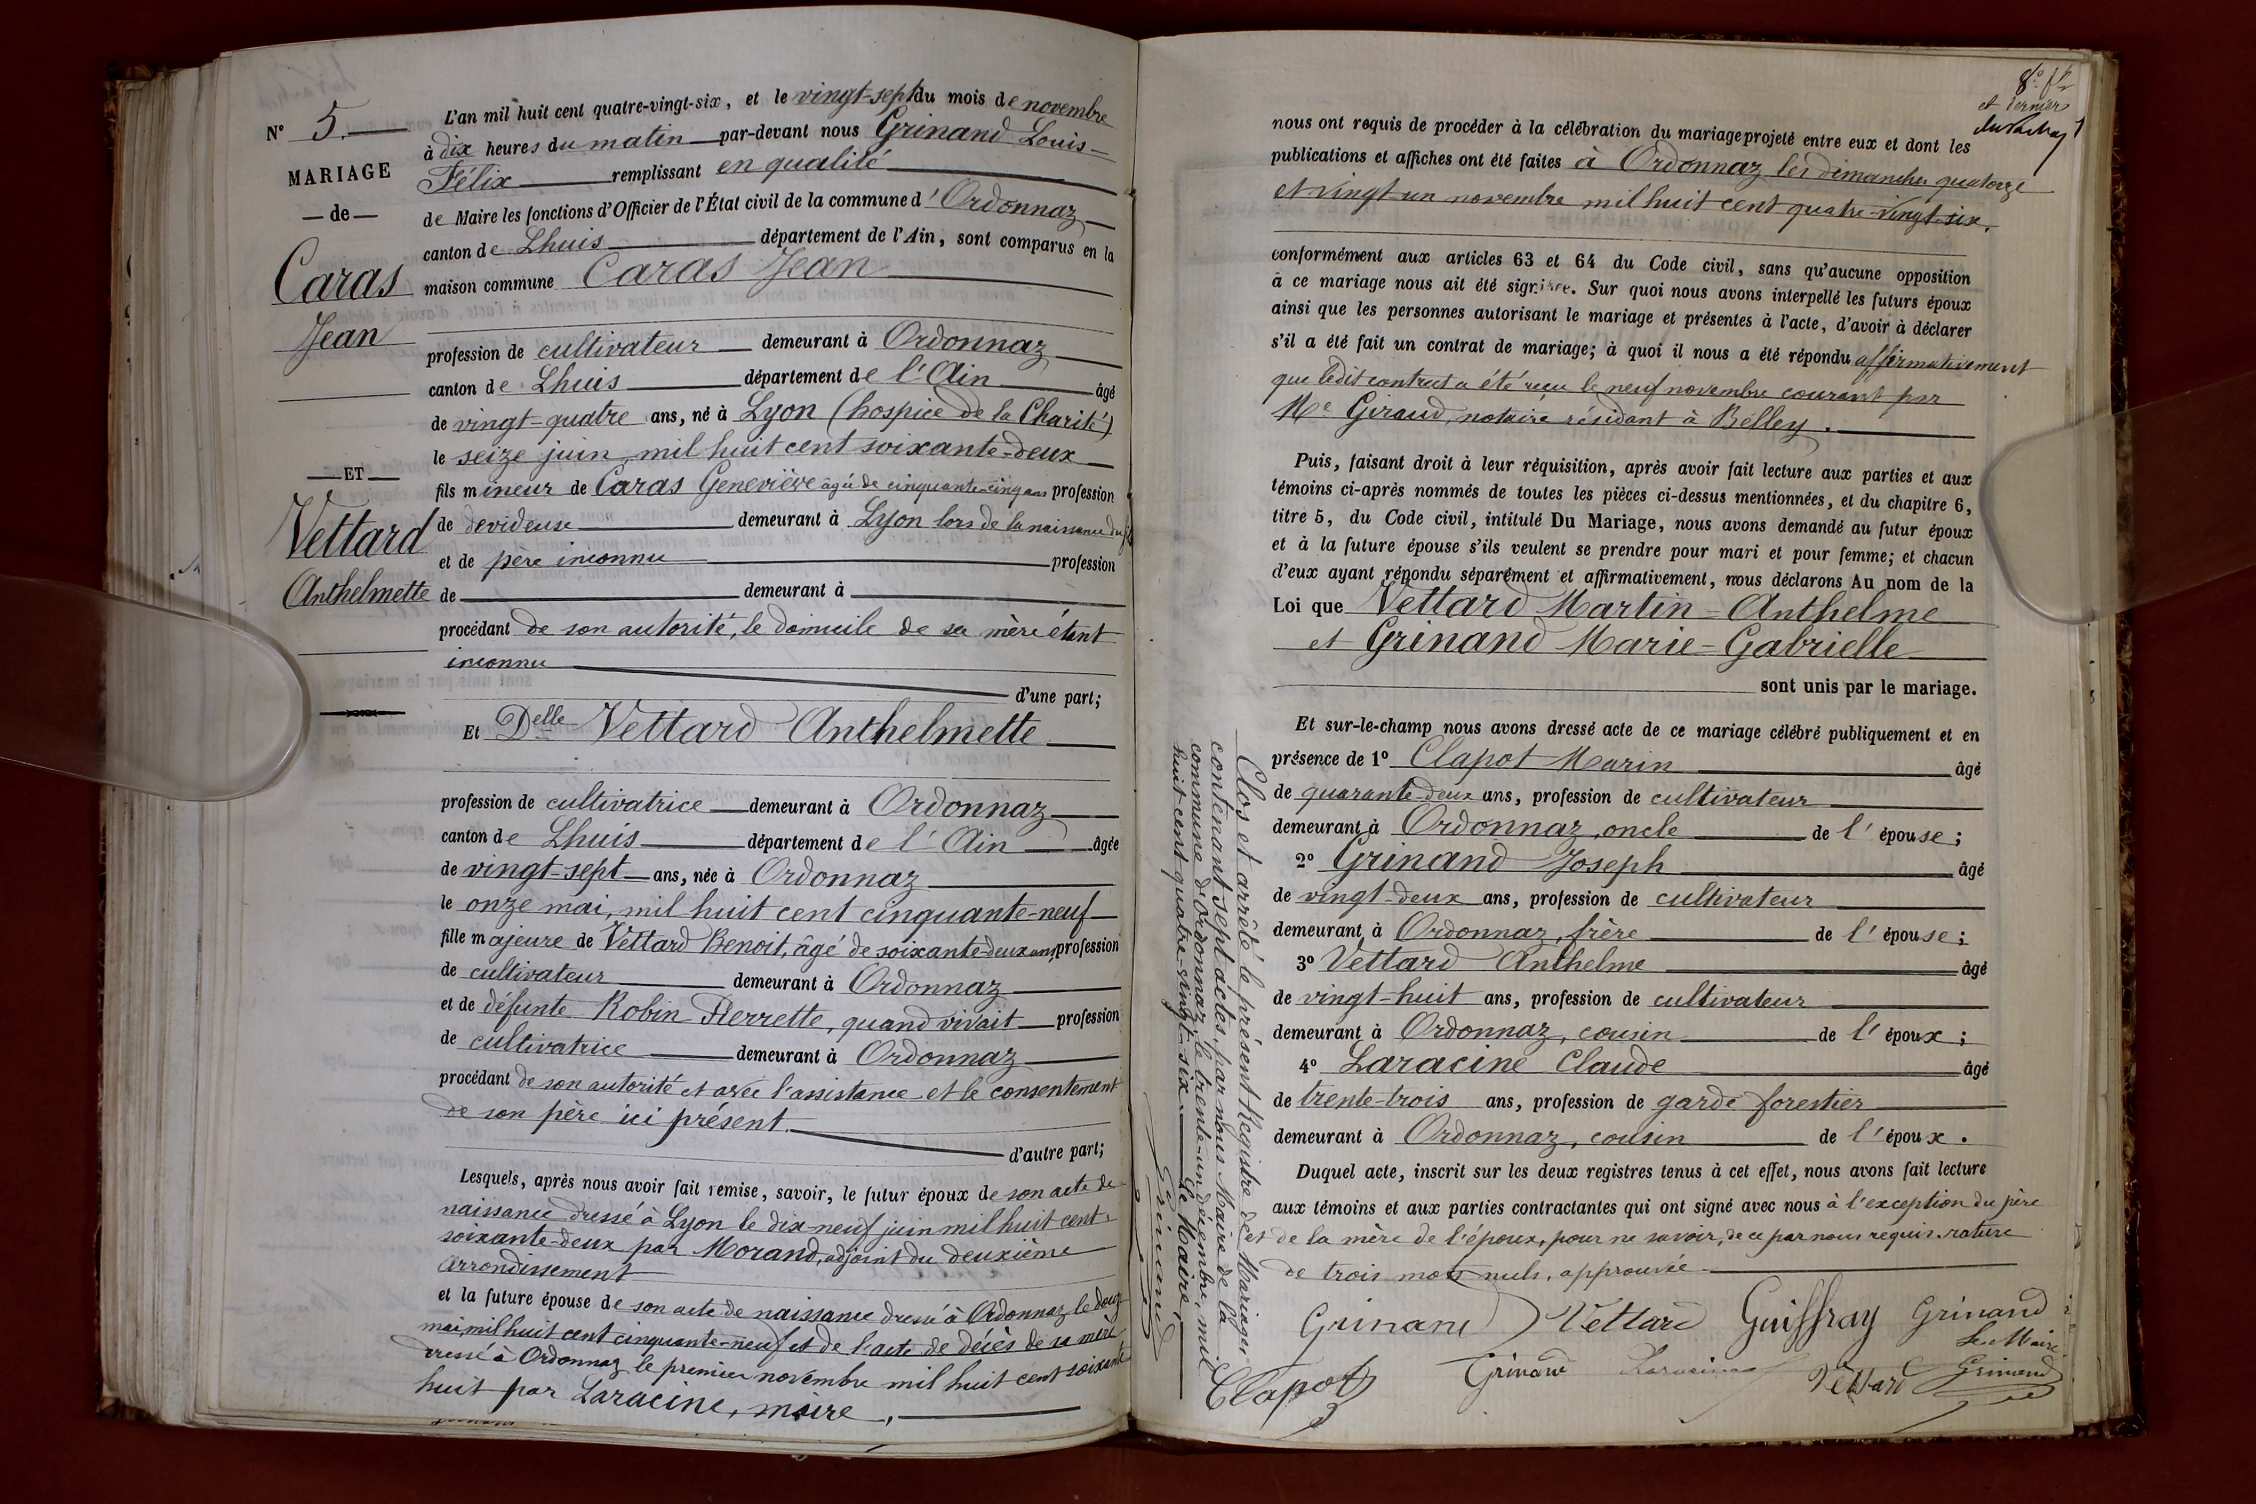 N° 5.
MARIAGE
— de —
Caras
Jean
— ET —
Vettard
Anthelmette
L'an mil huit cent quatre-vingt-six, et le vingt-sept du mois de novembre
à dix heures du matin par-devant nous Grinand Louis-
Félix remplissant en qualité
de Maire les fonctions d'Officier de l'État civil de la commune d'Ordonnaz
canton de Lhuis département de l'Ain, sont comparus en la
maison commune Caras Jean
profession de cultivateur demeurant à Ordonnaz
canton de Lhuis département de l'Ain âgé
de vingt-quatre ans, né à Lyon (hospice de la Charité)
le seize juin, mil huit cent soixante-deux
fils mineur de Caras Geneviève âgée de cinquante-cinq ans profession
de devideuse demeurant à Lyon lors de la naissance du
et de père inconnu profession
de demeurant à
procédant de son autorité, le domicile de sa mère étant
inconnu
d'une part;
Et Delle Vettard Anthelmette
profession de cultivatrice demeurant à Ordonnaz
canton de Lhuis département de l'Ain âgée
de vingt-sept ans, née à Ordonnaz
le onze mai, mil huit cent cinquante-neuf
fille majeure de Vettard Benoit, âgé de soixante-deux ans, profession
de cultivateur demeurant à Ordonnaz
et de défunte Robin Pierrette, quand vivait profession
de cultivatrice demeurant à Ordonnaz
procédant de son autorité et avec l'assistance et le consentement
de son père ici présent.
d'autre part;
Lesquels, après nous avoir fait remise, savoir, le futur époux de son acte de
naissance dressé à Lyon le dix-neuf juin mil huit cent
soixante-deux par Morand, adjoint du deuxième
arrondissement
et la future épouse de son acte de naissance dressé à Ordonnaz le douze
mai, mil huit cent cinquante-neuf et de l'acte de décès de sa mère
dressé à Ordonnaz le premier novembre mil huit cent soixante
huit par Laracine, maire,
8e ft
et dernier
nous ont requis de procéder à la célébration du mariage projeté entre eux et dont les
publications et affiches ont été faites à Ordonnaz les dimanches quatorze
et vingt-un novembre mil huit cent quatre-vingt-six.
conformément aux articles 63 et 64 du Code civil, sans qu'aucune opposition
à ce mariage nous ait été signifiée. Sur quoi nous avons interpellé les futurs époux
ainsi que les personnes autorisant le mariage et présentes à l'acte, d'avoir à déclarer
s'il a été fait un contrat de mariage; à quoi il nous a été répondu affirmativement
que ledit contrat a été reçu le neuf novembre courant par
Me Giraud, notaire résidant à Belley.
Puis, faisant droit à leur réquisition, après avoir fait lecture aux parties et aux
témoins ci-après nommés de toutes les pièces ci-dessus mentionnées, et du chapitre 6,
titre 5, du Code civil, intitulé Du Mariage, nous avons demandé au futur époux
et à la future épouse s'ils veulent se prendre pour mari et pour femme; et chacun
d'eux ayant répondu séparément et affirmativement, nous déclarons Au nom de la
Loi que Vettard Martin-Anthelme
et Grinand Marie-Gabrielle
sont unis par le mariage.
Et sur-le-champ nous avons dressé acte de ce mariage célébré publiquement et en
présence de 1° Clapot Marin âgé
de quarante-deux ans, profession de cultivateur
demeurant à Ordonnaz, oncle de l'épouse;
2° Grinand Joseph âgé
de vingt-deux ans, profession de cultivateur
demeurant à Ordonnaz, frère de l'épouse;
3° Vettard Anthelme âgé
de vingt-huit ans, profession de cultivateur
demeurant à Ordonnaz, cousin de l'époux;
4° Laracine Claude âgé
de trente-trois ans, profession de garde forestier
demeurant à Ordonnaz, cousin de l'époux.
Duquel acte, inscrit sur les deux registres tenus à cet effet, nous avons fait lecture
aux témoins et aux parties contractantes qui ont signé avec nous à l'exception du père
et de la mère de l'époux, pour ne savoir, de ce par nous requis. rature
de trois mots nuls, approuvée.
Grinand Vettard Guiffray Grinand
Le Maire
Clapot Grinand Laracine Vettard Grinand
Clos et arrêté le présent Registre de Mariages,
contenant sept actes, par nous Maire de la
commune d'Ordonnaz, le trente-un décembre, mil
huit cent quatre-vingt-six.
Le Maire,
Grinand